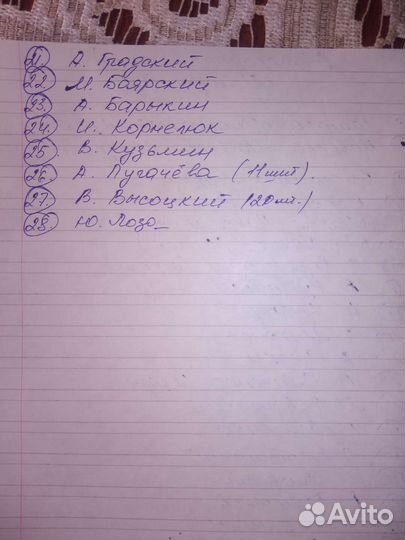 21. А. Градский
22. М. Боярский
23. А. Барыкин
24. И. Корнелюк
25. В. Кузьмин
26. А. Пугачёва (11 шт).
27. В. Высоцкий (20 шт.)
28. Ю. Лоза
Avito